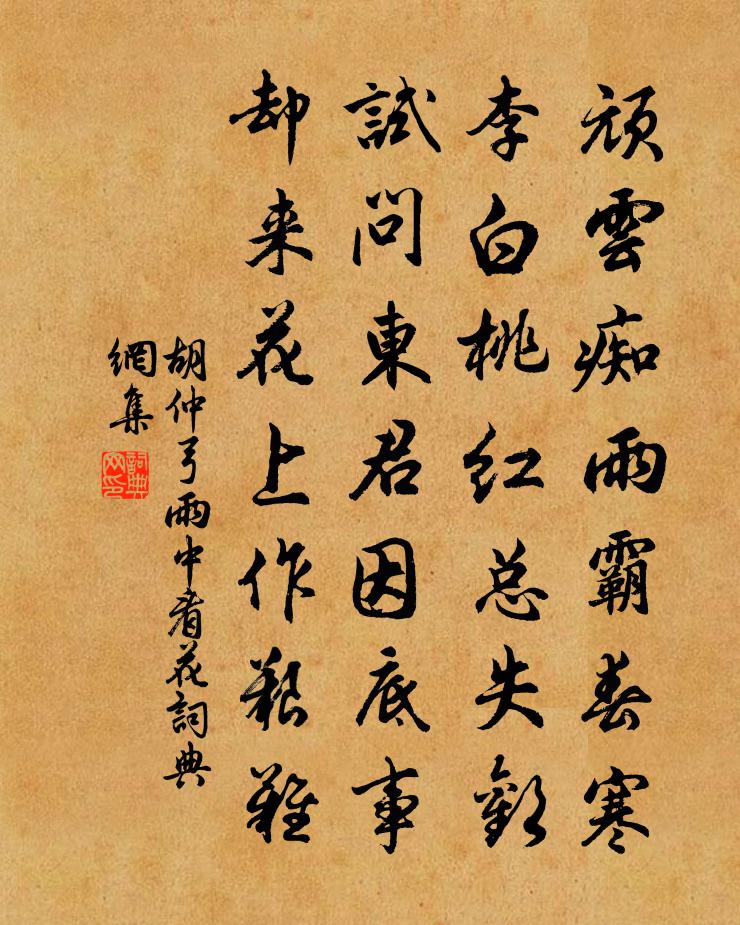 頑雲痴雨霸春寒
李白桃红总失歡
試問東君因底事
却来花上作艱難
胡仲弓雨中看花詞典
網集
詞典
网印